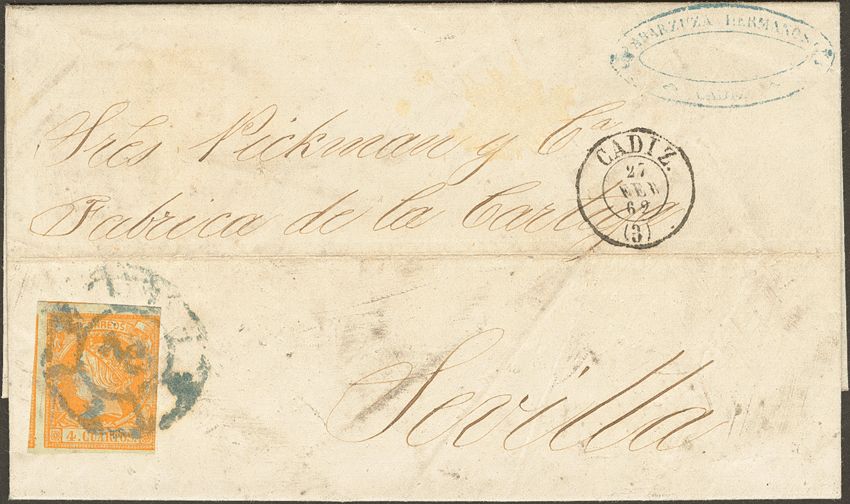 ABARZUZA HERMANOS
CADIZ
Srês Pickman y Cª
Fabrica de la Cartuja
CADIZ.
27
FEB
62
(3)
CORREOS
4 CUARTOS
Sevilla